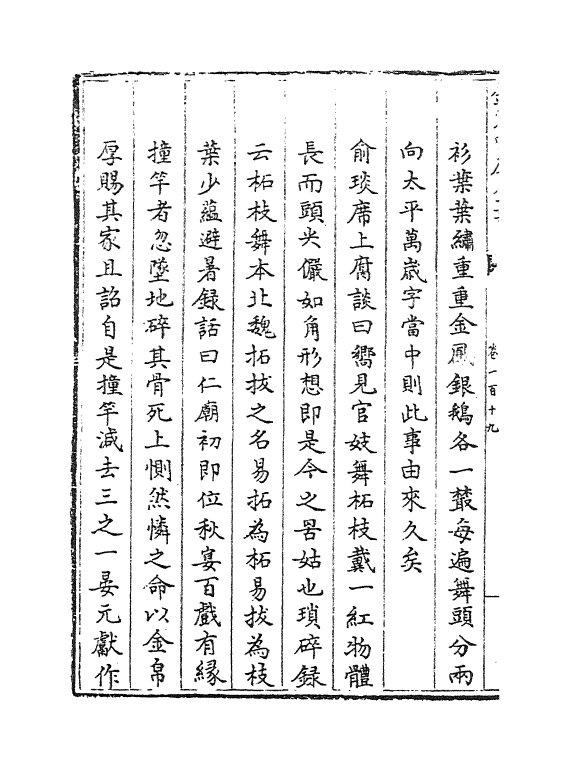 卷一百十九
衫葉葉繡重重金鳳銀鵝各一叢每遍舞頭分兩
向太平萬歲字當中則此事由來久矣
俞琰席上腐談曰嚮見官妓舞柘枝戴一紅物體
長而頭尖儼如角形想即是今之罟姑也瑣碎録
云柘枝舞本北魏拓拔之名易拓為柘易拔為枝
葉少蘊避暑録話曰仁廟初即位秋宴百戲有緣
撞竿者忽墜地碎其骨死上惻然憐之命以金帛
厚賜其家且詔自是撞竿減去三之一晏元獻作